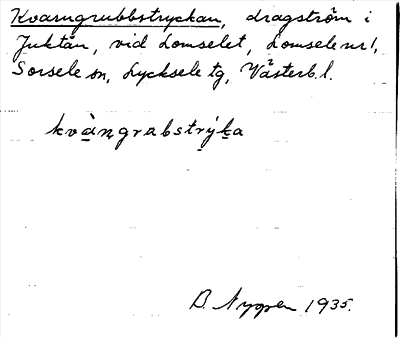 Kvarngrubbstryckan, dragström i
Juktån, vid Lomselet, Lomsele nr 1,
Sorsele sn, Lycksele tg, Västerb. l.
kvàn̠grabstrýka
B. Nygren 1935.